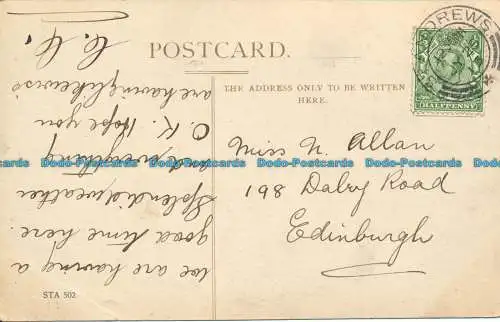 POSTCARD.
THE ADDRESS ONLY TO BE WRITTEN
HERE.
We are having a
good time here.
Splendid weather
and everything
O.K. Hope you
are having likewise
C. C.
Miss N. Allan
198 Dalry Road
Edinburgh
DREWS
HALFPENNY
STA 502
Dodo-Postcards Dodo-Postcards Dodo-Postcards Dodo-Postcards Dodo-Postcards Dodo-Postcards